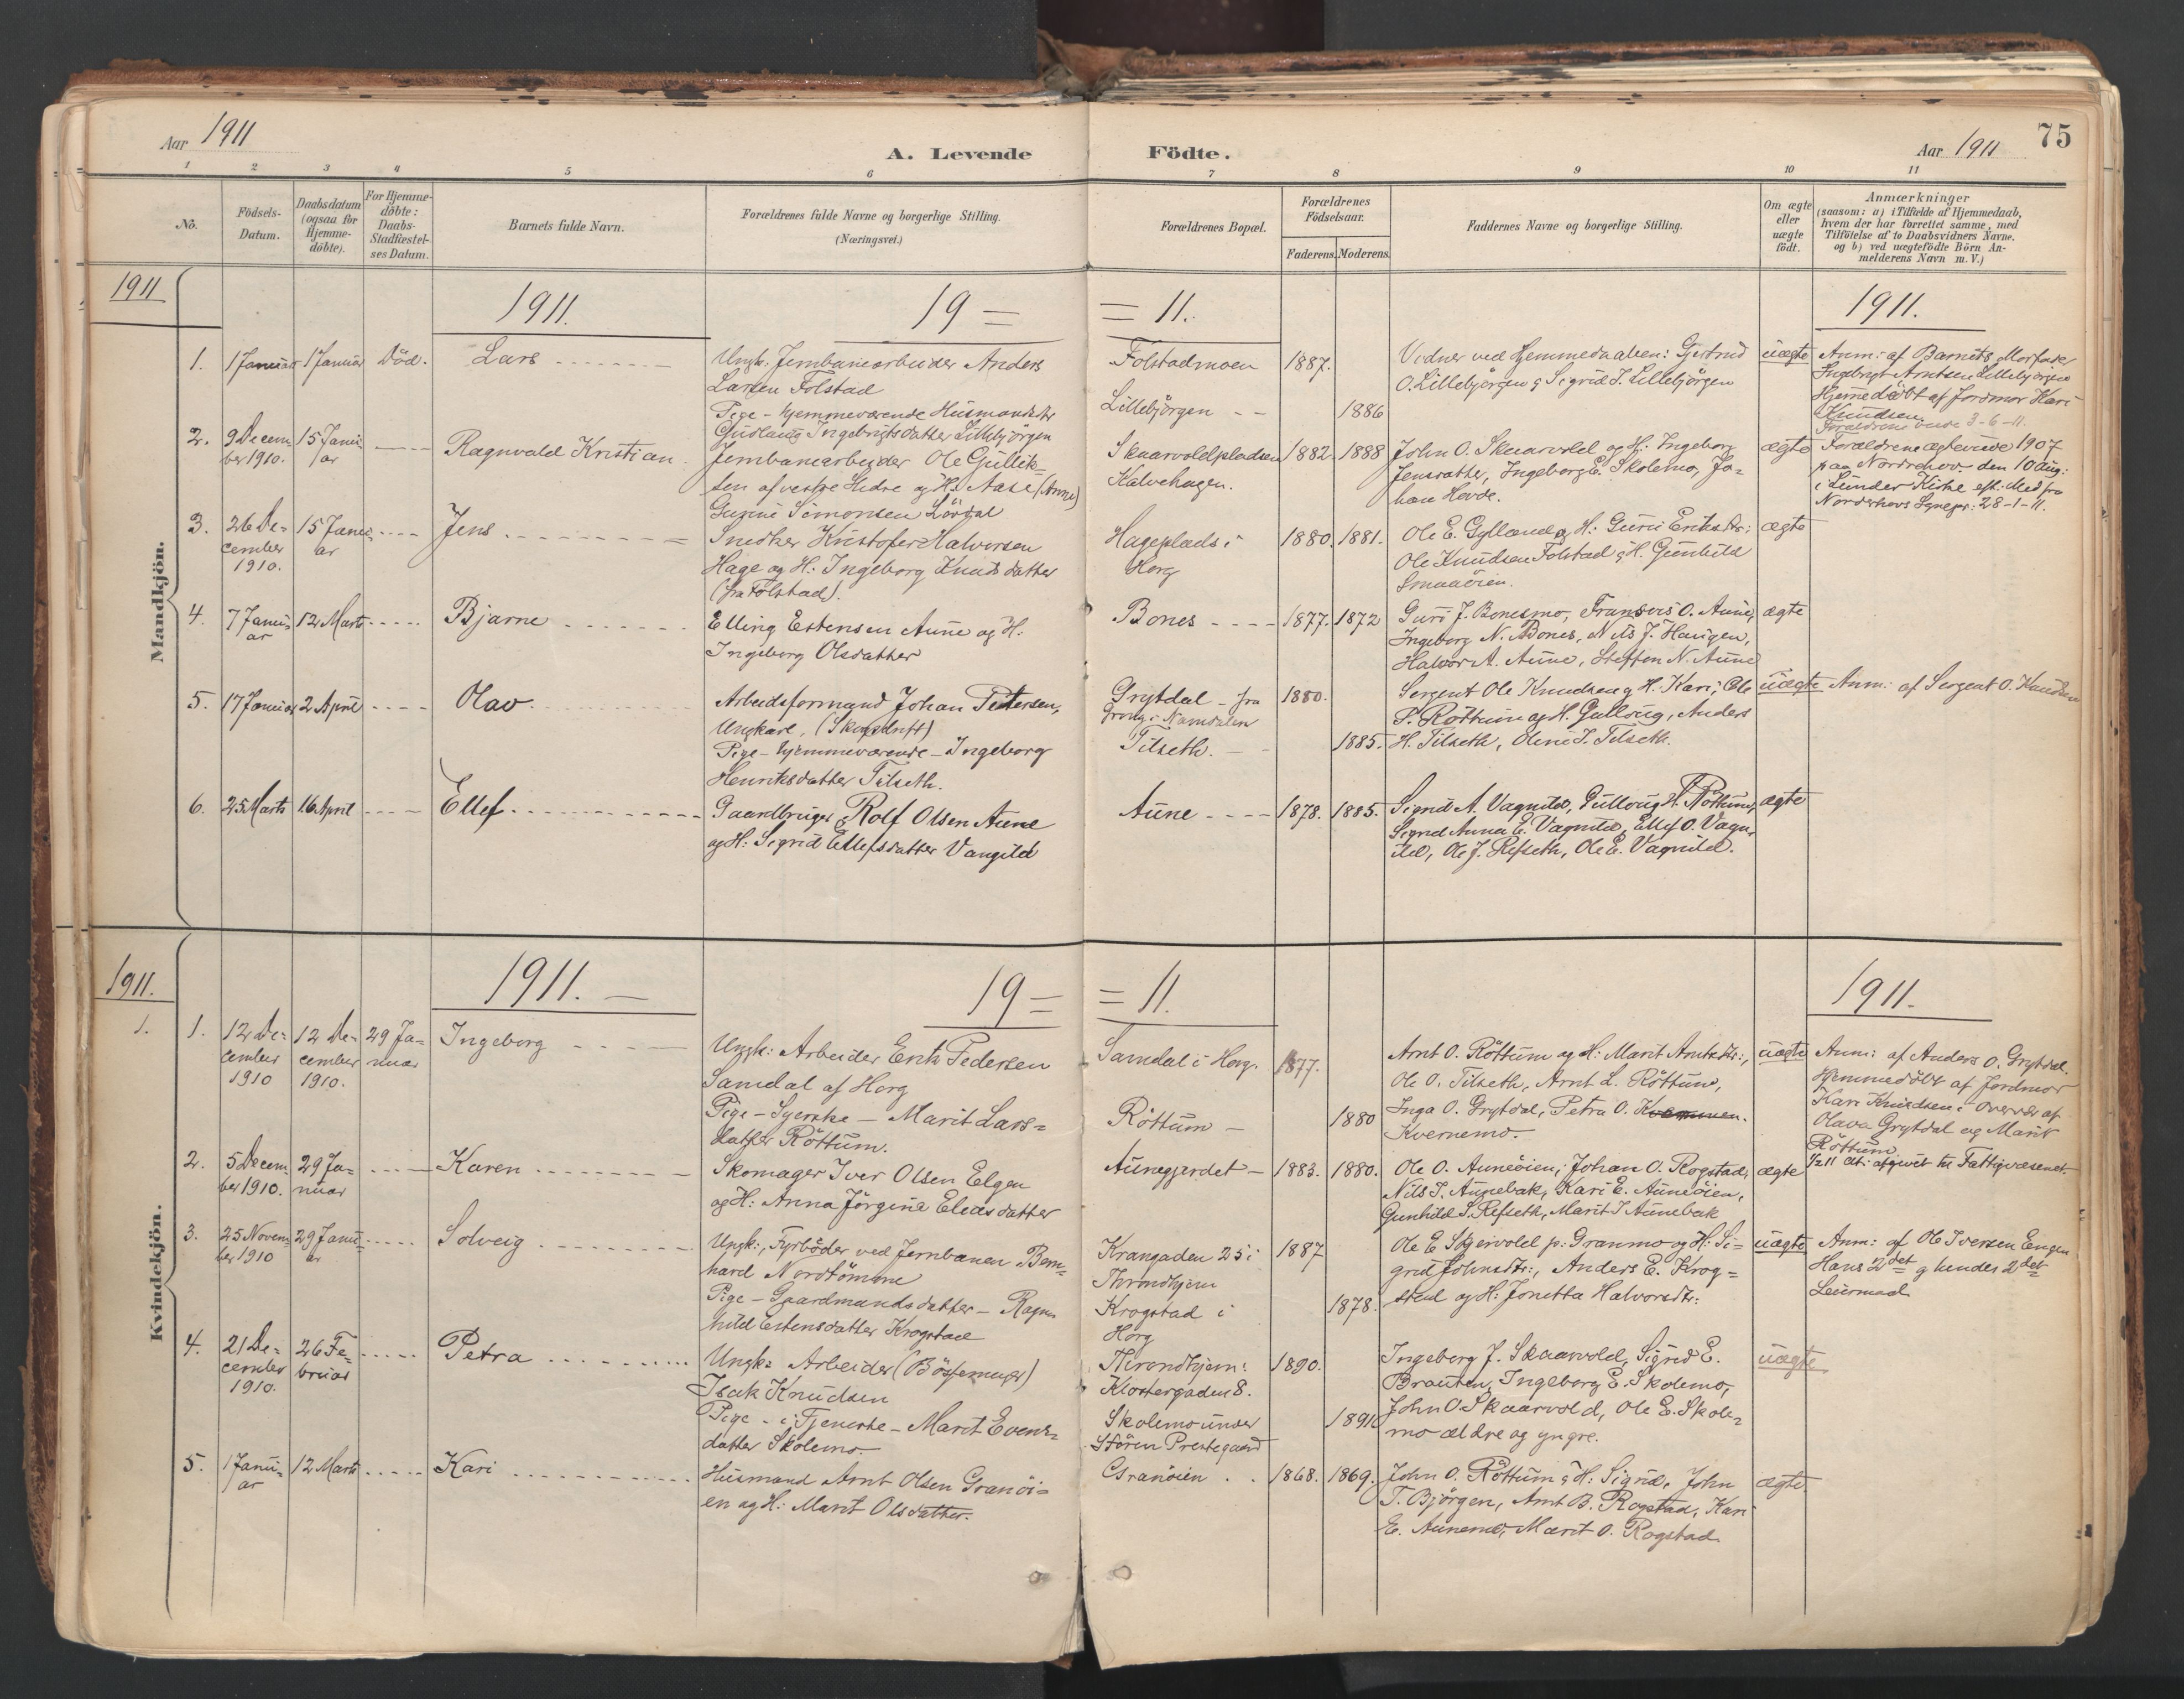 Aar 1911
A. Levende Födte.
Aar 1911
75
1 2 3 4 5 6 7 8 9 10 11
No.
Födsels-
Datum.
Daabsdatum
(ogsaa for
Hjemme-
döbte).
For Hjemme-
döbte:
Daabs-
Stadfæstel-
ses Datum.
Barnets fulde Navn.
Forældrenes fulde Navne og borgerlige Stilling.
(Næringsvei.)
Forældrenes Bopæl.
Forældrenes
Födselsaar.
Faderens. Moderens.
Faddernes Navne og borgerlige Stilling.
Om ægte
eller
uægte
födt.
Anmærkninger
(saasom: a) i Tilfælde af Hjemmedaab,
hvem der har forrettet samme, med
Tilföielse af to Daabsvidners Navne.
og b) ved uægtefödte Börn An-
melderens Navn m. V.)
Mandkjön.
1911
1911.
19 =
= 11.
1911.
1.
1 Januar
1 Januar
Död.
Lars
Ungk. Jernbanearbeider Anders
Larsen Folstad
Pige - hjemmeværende Husmandsdtr
Gudlaug Ingebrigtsdatter Lillebjörgen
Folstadmoen
Lillebjörgen
1887.
1886
Vidner ved Hjemmedaaben: Gjertrud
O. Lillebjörgen & Sigrid I. Lillebjörgen
uægte
Anm: af Barnets Morfar
Ingebrigt Arntsen Lillebjörgen
Hjemmedöbt af Jordmor Kari
Knudsen
Forældrene viede 3-6-11.
2.
9 Decem
ber 1910.
15 Janu
ar
Ragnvald Kristian
Jernbanearbeider Ole Gullik=
sen af vestre Hidre og H. Aase (Anne)
Gurine Simonsen Lördal
Skaarvoldpladsen
Kalvehagen.
1882.
1888
John O. Skaarvold og H. Ingeborg
Jensdatter, Ingeborg E. Skolemo, Jo=
han Hovde.
ægte
Forældrene ægteviede 1907
paa Norderhov den 10 Aug:
i Lunder Kirke eft. Med. fra
Norderhovs Sognepr: 28-1-11.
3.
26 De-
cember
1910.
15 Janu-
ar
Jens
Snedker Kristofer Halvorsen
Hage og H. Ingeborg Knudsdatter
(fra Folstad).
Hageplads i
Horg
1880.
1881.
Ole E. Gylland og H. Guru Eriksdtr:
Ole Knudsen Folstad & H. Gunhild
Smaaöien.
ægte
4.
7 Janu-
ar
12 Marts
Bjarne
Elling Estensen Aune og H.
Ingeborg Olsdatter
Bones
1877.
1872
Guro J. Bonesmo, Fransers O. Aune,
Ingeborg N. Bones, Nils J. Haugen,
Halvor A. Aune, Steffen N. Aune
ægte
5.
17 Januar
2 April
Olav
Arbeidsformand Johan Petersen,
Ungkarl, (Skogdrift)
Pige - hjemmeværende - Ingeborg
Henriksdatter Tilseth.
Grytdal - fra
Grong i Namdalen
Tilseth.
1880.
1885.
Sergent Ole Knudsen & H. Kari, Ole
P. Röttum og H. Gulloug, Anders
H. Tilseth, Oline I. Tilseth.
uægte
Anm: af Sergent O. Knudsen
6.
25 Marts
16 April
Ellef
Gaardbruger Rolf Olsen Aune
og H. Sigrid Ellefsdatter Vangild
Aune
1878.
1885.
Sigrid A. Vagnild, Gulloug H. Röttum,
Sigrid Anna E. Vagnild, Ellef O. Vagn-
ild, Ole J. Refseth, Ole E. Vagnild.
ægte
Kvindekjön.
1911.
1911.
19 =
= 11.
1911.
1.
1.
12 De-
cember
1910
12 De-
cember
1910.
29 Ja-
nuar
Ingeborg
Ungk: Arbeider Erik Pedersen
Samdal af Horg
Pige - Syerske - Marit Lars=
datter Röttum.
Samdal i Horg.
Röttum
1877.
1880
Arnt O. Röttum og H: Marit Arntsdtr:,
Ole O. Tilseth, Arnt L. Röttum,
Inga O. Grytdal, Petra O.
Kvernemo.
uægte
Anm: af Anders O. Grytdal.
Hjemmedöbt af Jordmor
Kari Knudsen i overvær af
Olava Grytdal og Marit
Röttum.
1/2 11 att: afgivet til Fattigvæsenet.
2.
5 Decem
ber 1910.
29 Ja-
nuar
Karen
Skomager Iver Olsen Elgen
og H: Anna Jörgine Eliasdatter
Aunegjerdet
1883.
1880.
Ole O. Auneöien, Johan O. Rogstad,
Nils I. Aunebak, Kari E. Auneöien,
Gunhild S. Refseth, Marit I Aunebak
ægte
3.
25 Novem
ber 1910
29 Janu-
ar
Solveig
Ungk: Fyrböder ved Jernbanen Bern=
hard Nordtömme
Pige - Gaardmandsdatter - Ragn
hild Estensdatter Krogstad
Krangaden 25 i
Throndhjem
Krogstad i
Horg
1887
1878.
Ole E Skjervold p: Granmo og H: Si=
grid Johnsdtr:, Anders E. Krog=
stad og H: Jonetta Halvorsdtr:
uægte
Anm: af Ole Iversen Engen
Hans 2det & hendes 2det
Leiermaal
4.
21 De-
cember
1910.
26 Fe-
bruar
Petra
Ungk: Arbeider (Bössemager)
Isak Knudsen
Pige - i Tjeneste - Marit Evens=
datter Skolemo
Throndhjem:
Klostergaden 8.
Skolemo under
Stören Prestegaard
1890.
1891
Ingeborg J. Skaarvold, Sigrid E.
Brauten, Ingeborg E. Skolemo,
John O. Skaarvold, Ole E. Skole=
mo ældre og yngre.
uægte
5.
1 Janu-
ar
12 Marts
Kari
Husmand Arnt Olsen Granöi=
en og H: Marit Olsdatter.
Granöien
1868.
1869.
John O. Röttum & H: Sigrid, John
T. Björgen, Arnt B. Rogstad, Kari
E. Aunemo, Marit O. Rogstad
ægte